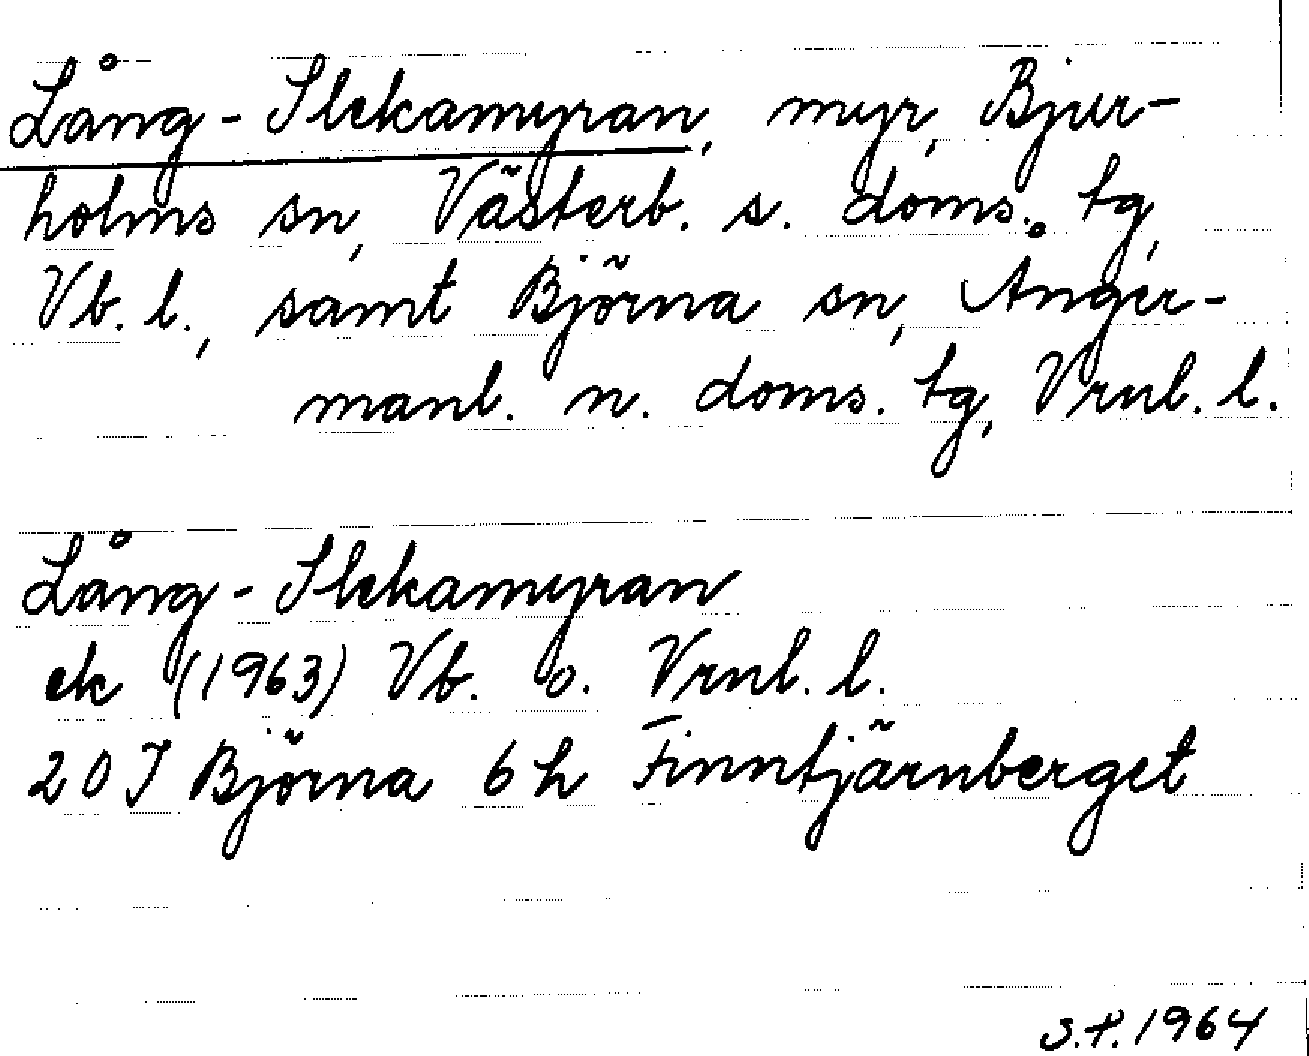 Lång-Slekamyran, myr, Bjur-
holms sn, Västerb. s. doms. tg,
Vb. l., samt Björna sn, Ånger-
manl. n. doms. tg, Vrnl. l.
Lång-Slekamyran
ek (1963) Vb. o. Vrnl. l.
20 J Björna 6 h Finntjärnberget
S.P. 1964